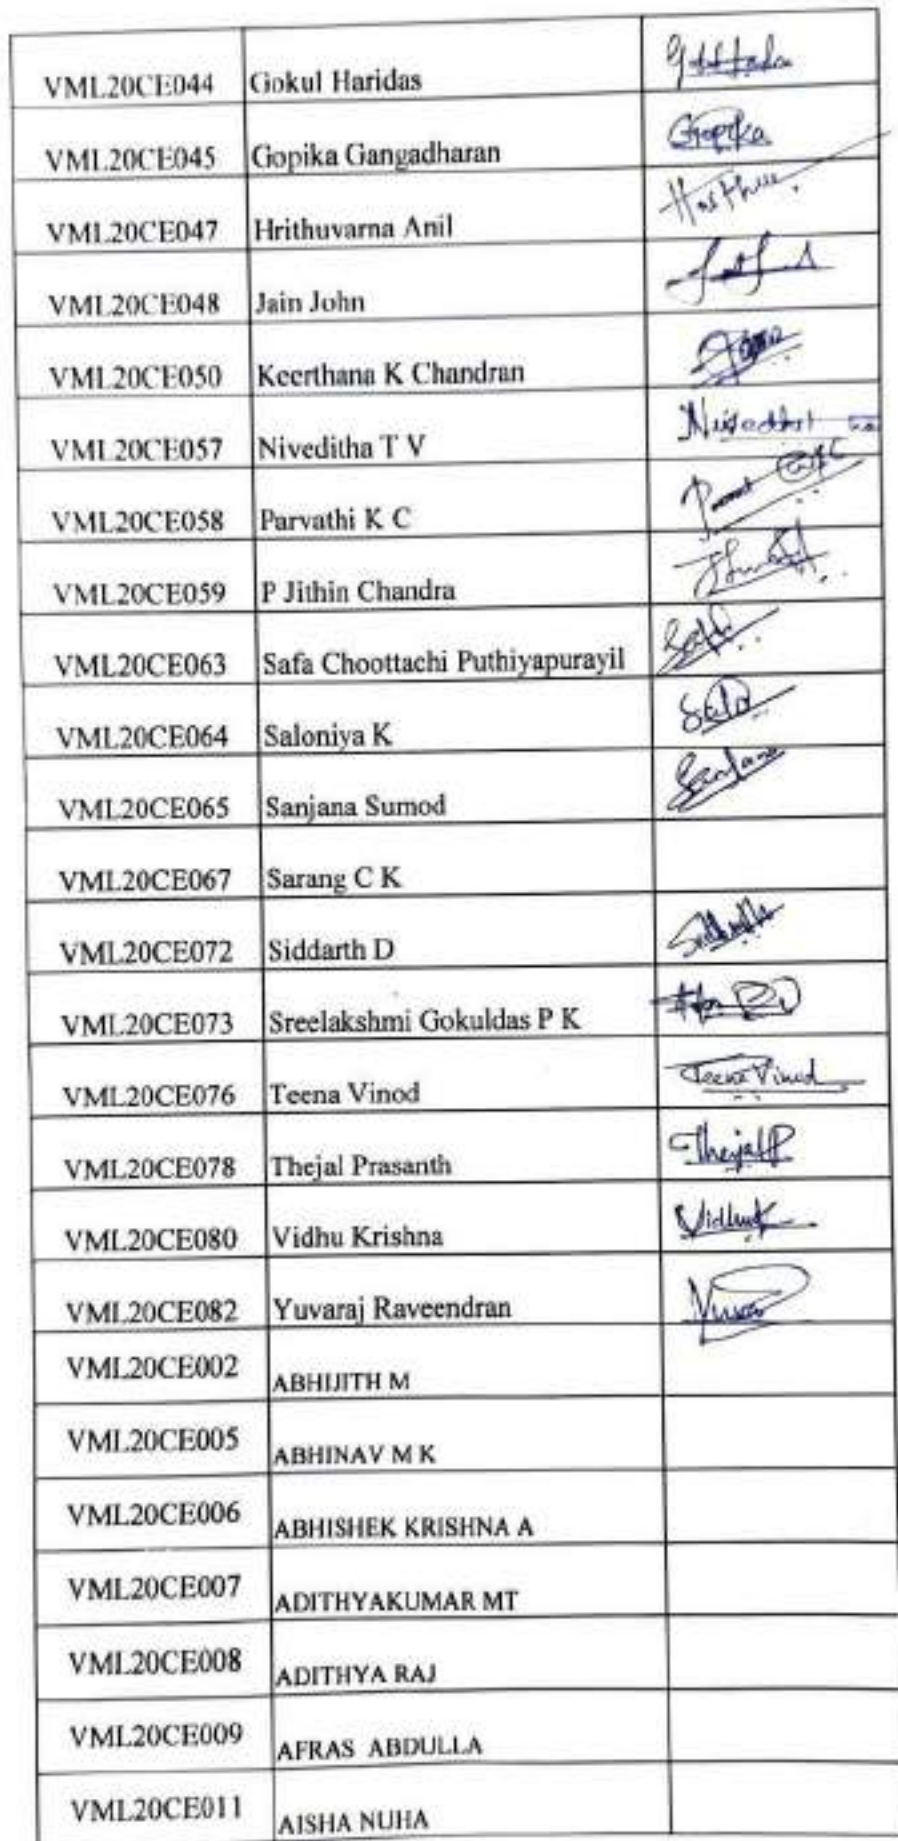 VML20CE044 Gokul Haridas
VML20CE045 Gopika Gangadharan Gopika
VML20CE047 Hrithuvarna Anil
VML20CE048 Jain John
VML20CE050 Keerthana K Chandran
VML20CE057 Niveditha T V
VML20CE058 Parvathi K C
VML20CE059 P Jithin Chandra
VML20CE063 Safa Choottachi Puthiyapurayil
VML20CE064 Saloniya K
VML20CE065 Sanjana Sumod Sanjana
VML20CE067 Sarang C K
VML20CE072 Siddarth D
VML20CE073 Sreelakshmi Gokuldas P K
VML20CE076 Teena Vinod Teena Vinod
VML20CE078 Thejal Prasanth Thejal P
VML20CE080 Vidhu Krishna Vidhu K
VML20CE082 Yuvaraj Raveendran
VML20CE002 ABHIJITH M
VML20CE005 ABHINAV M K
VML20CE006 ABHISHEK KRISHNA A
VML20CE007 ADITHYAKUMAR MT
VML20CE008 ADITHYA RAJ
VML20CE009 AFRAS ABDULLA
VML20CE011 AISHA NUHA